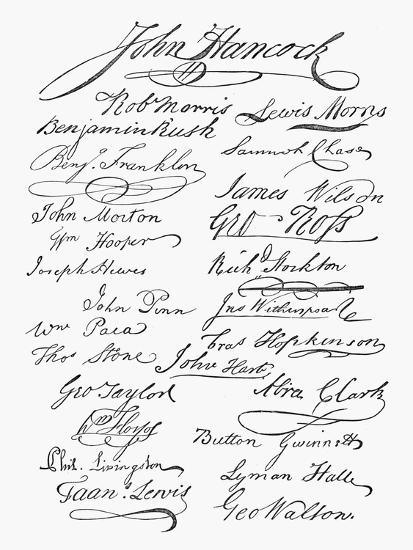 John Hancock
Robt Morris
Lewis Morris
Benjamin Rush
Samuel Chase
Benj. Franklin
James Wilson
John Morton
Geo Ross
Wm Hooper
Joseph Hewes
Richd Stockton
John Penn
Jno Witherspoon
Wm Paca
Fras Hopkinson
Thos Stone
John Hart
Geo Taylor
Abra Clark
Wm Floyd
Button Gwinnett
Phil. Livingston
Lyman Hall
Frans. Lewis
Geo Walton.